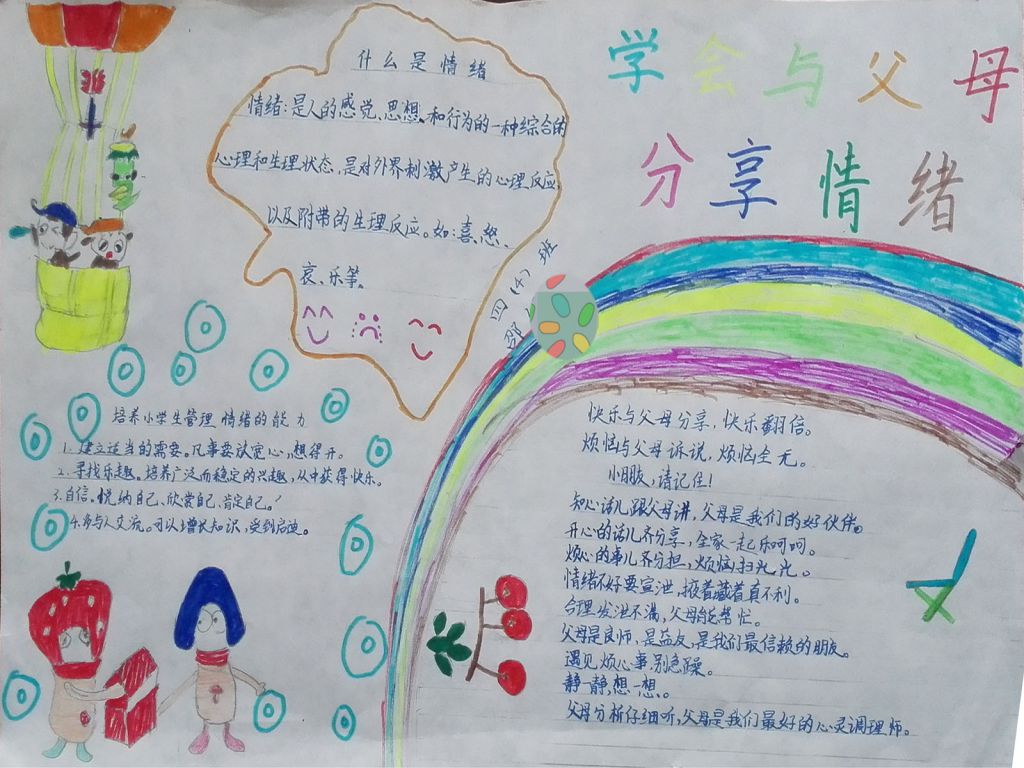 学会与父母
分享情绪
什么是情绪
情绪:是人的感觉、思想、和行为的一种综合的
心理和生理状态,是对外界刺激产生的心理反应
以及附带的生理反应。如:喜、怒、
哀、乐等。
四(4)班
邵
培养小学生管理情绪的能力
1.建立适当的需要。凡事要放宽心,想得开。
2.寻找乐趣。培养广泛而稳定的兴趣,从中获得快乐。
3.自信。悦纳自己、欣赏自己、肯定自己。!
4.多与人交流。可以增长知识,受到启迪。
快乐与父母分享,快乐翻倍。
烦恼与父母诉说,烦恼全无。
小朋友,请记住!
知心话儿跟父母讲,父母是我们的好伙伴。
开心的话儿齐分享,全家一起乐呵呵。
烦心的事儿齐分担,烦恼扫光光。
情绪不好要宣泄,掖着藏着真不利。
合理发泄不满,父母能帮忙。
父母是良师、是益友,是我们最信赖的朋友。
遇见烦心事别急躁。
静一静,想一想。
父母分析仔细听,父母是我们最好的心灵调理师。